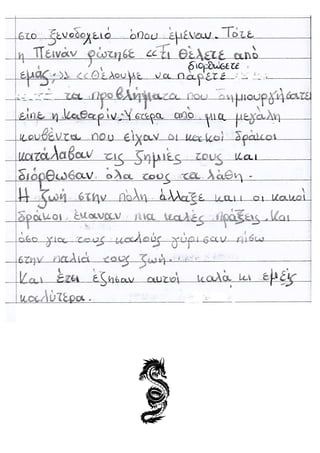 στο ξενοδοχείο όπου έμεναν. Τότε
η Πεινάν ρώτησε «Τι θέλετε από
διορθώσετε
εμάς;» «Θέλουμε να πάρετε
τα προβλήματα που δημιουργήσατε
είπε η Καθαρίν. Ύστερα από μια μεγάλη
κουβέντα που είχαν οι κακοί δράκοι
κατάλαβαν τις ζημιές τους και
διόρθωσαν όλα τους τα λάθη.
Η ζωή στην πόλη άλλαξε και οι κακοί
δράκοι έκαναν πια καλές πράξεις. Και
όσο για τους καλούς γύρισαν πίσω
στην παλιά τους ζωή.
Και έτσι έζησαν αυτοί καλά κι εμείς
καλύτερα.